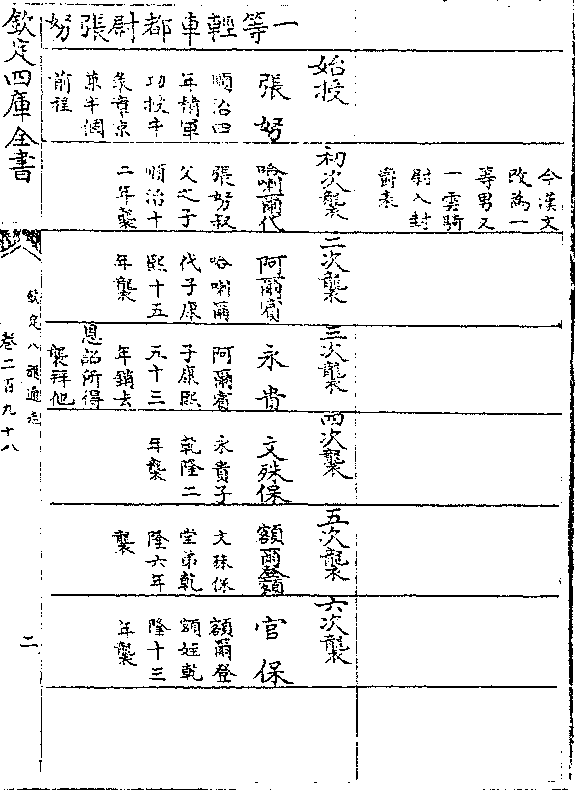 一等輕車都尉張努
今漢文
改為一
等男又
一雲騎
尉入封
爵表
始授
張努
順治四
年積軍
功授牛
彔章京
兼半個
前程
初次襲
哈喇爾代
張努叔
父之子
順治十
二年襲
二次襲
阿爾賓
哈喇爾
代子康
熙十五
年襲
三次襲
永貴
阿爾賓
子康熙
十三
年銷去
恩詔所得
襲拜他
四次襲
文殊保
永貴子
乾隆二
年襲
五次襲
額爾登額
文殊保
堂弟乾
隆六年
襲
六次襲
官保
額爾登
額姪乾
隆十三
年襲
欽定四庫全書
欽定八旗通志
卷二百九十八
二